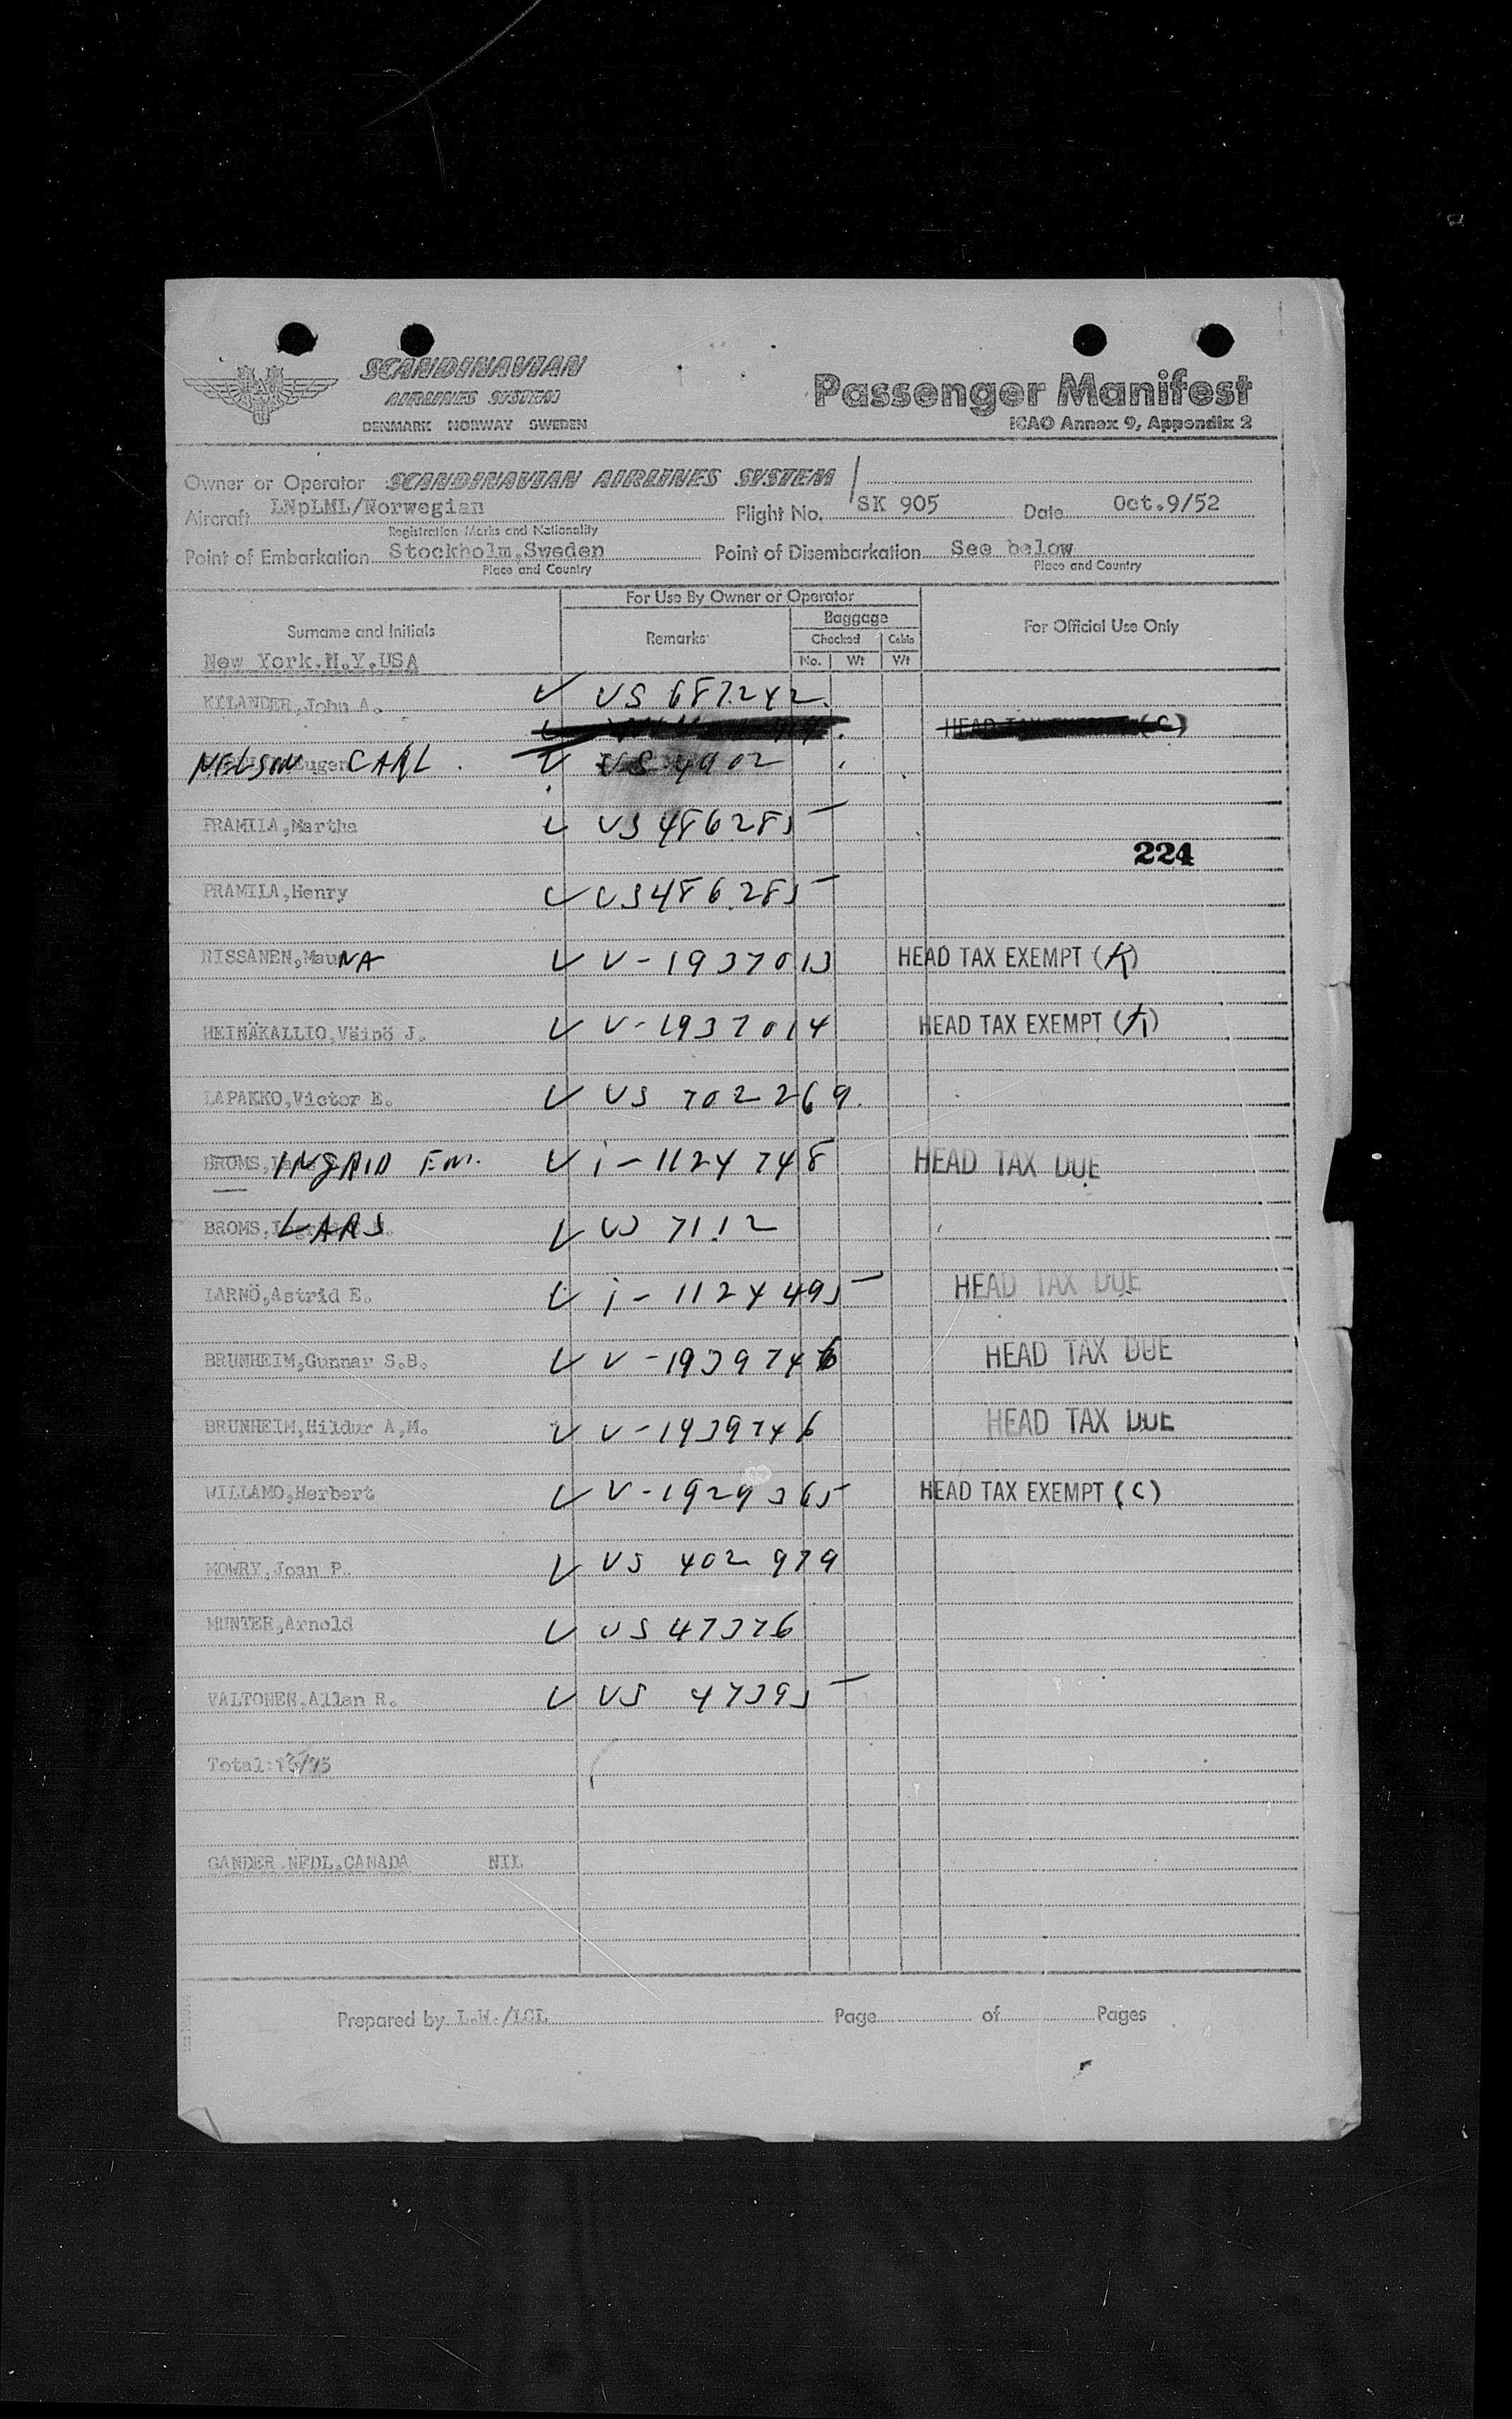 SCANDINAVIAN
AIRLINES SYSTEM
DENMARK NORWAY SWEDEN
Passenger Manifest
ICAO Annex 9, Appendix 2
Owner or Operator SCANDINAVIAN AIRLINES SYSTEM
Aircraft LNpLML/Norwegian Flight No. SK 905 Date Oct.9/52
Registration Marks and Nationality
Point of Embarkation Stockholm,Sweden Point of Disembarkation See below
Place and Country Place and Country
For Use By Owner or Operator
Surname and Initials Remarks Baggage For Official Use Only
Checked Cabin
No. Wt Wt
New York.N.Y.USA
KYLANDER,John A. US 687242
HEAD TAX (C)
NELSON CARL US 4902
PRAMILA,Martha US 486285
224
PRAMILA,Henry US 486285
RISSANEN,MauNA V-1937013 HEAD TAX EXEMPT (A)
HEINÄKALLIO,Väinö J. V-1937014 HEAD TAX EXEMPT (A)
LAPAKKO,Victor E. US 702269
BROMS, INGRID EM. i-1124748 HEAD TAX DUE
BROMS, LARS US 7112
LARNÖ,Astrid E. i-1124495 HEAD TAX DUE
BRUNHEIM,Gunnar S.B. V-1939746 HEAD TAX DUE
BRUNHEIM,Hildur A,M. V-1939746 HEAD TAX DUE
WILLAMO,Herbert V-1929365 HEAD TAX EXEMPT (C)
MOWRY,Joan P. US 402979
MUNTER,Arnold US 47376
VALTONEN,Allan R. US 47395
Total:
GANDER NFDL,CANADA NIL
Prepared by L.W./LCL Page of Pages